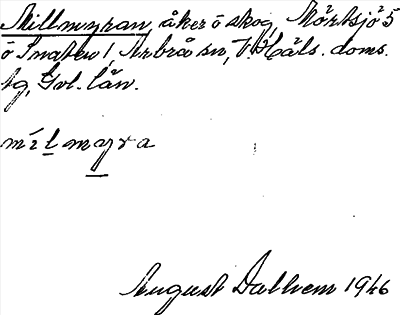 Millmyran, åker o skog, Mörtsjö 5
o Snaten 1, Arbrå sn, V. Häls. doms.
tg, Gvl. län.
mìlmyra
August Dalhem 1946